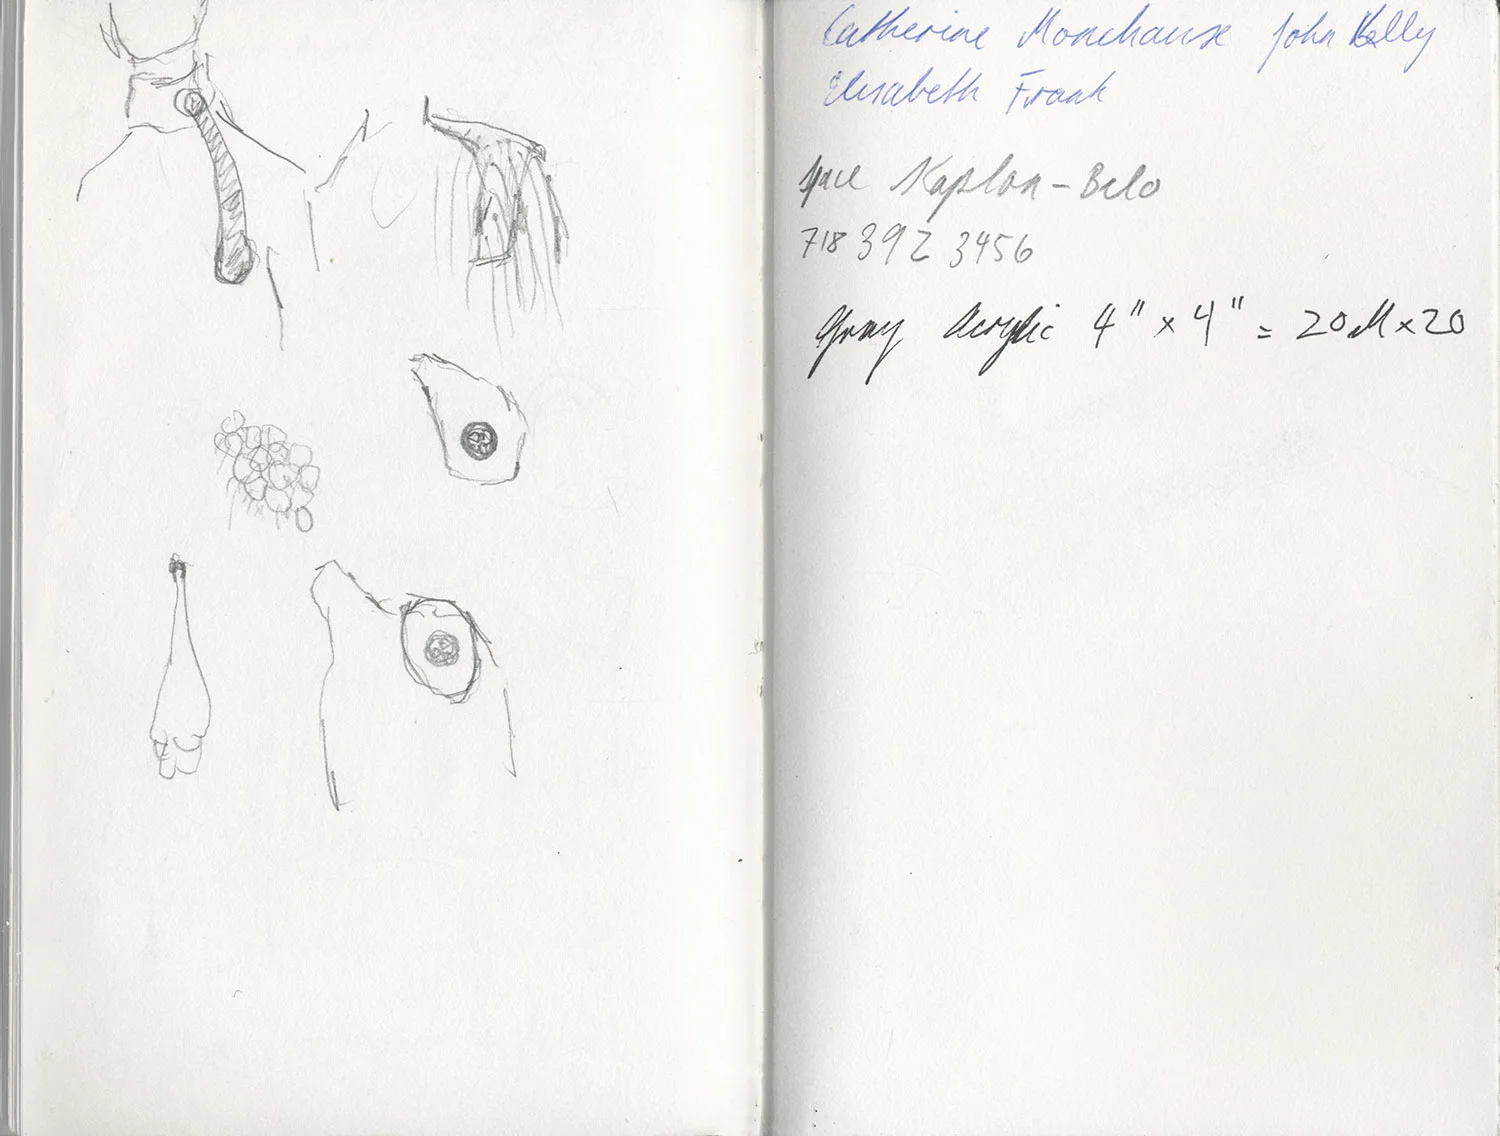 Catherine Monehause John Kelly
Elisabeth Frank
Kaplon-Belo
718 392 3456
Gray Acrylic 4" x 4" = 20 M x 20